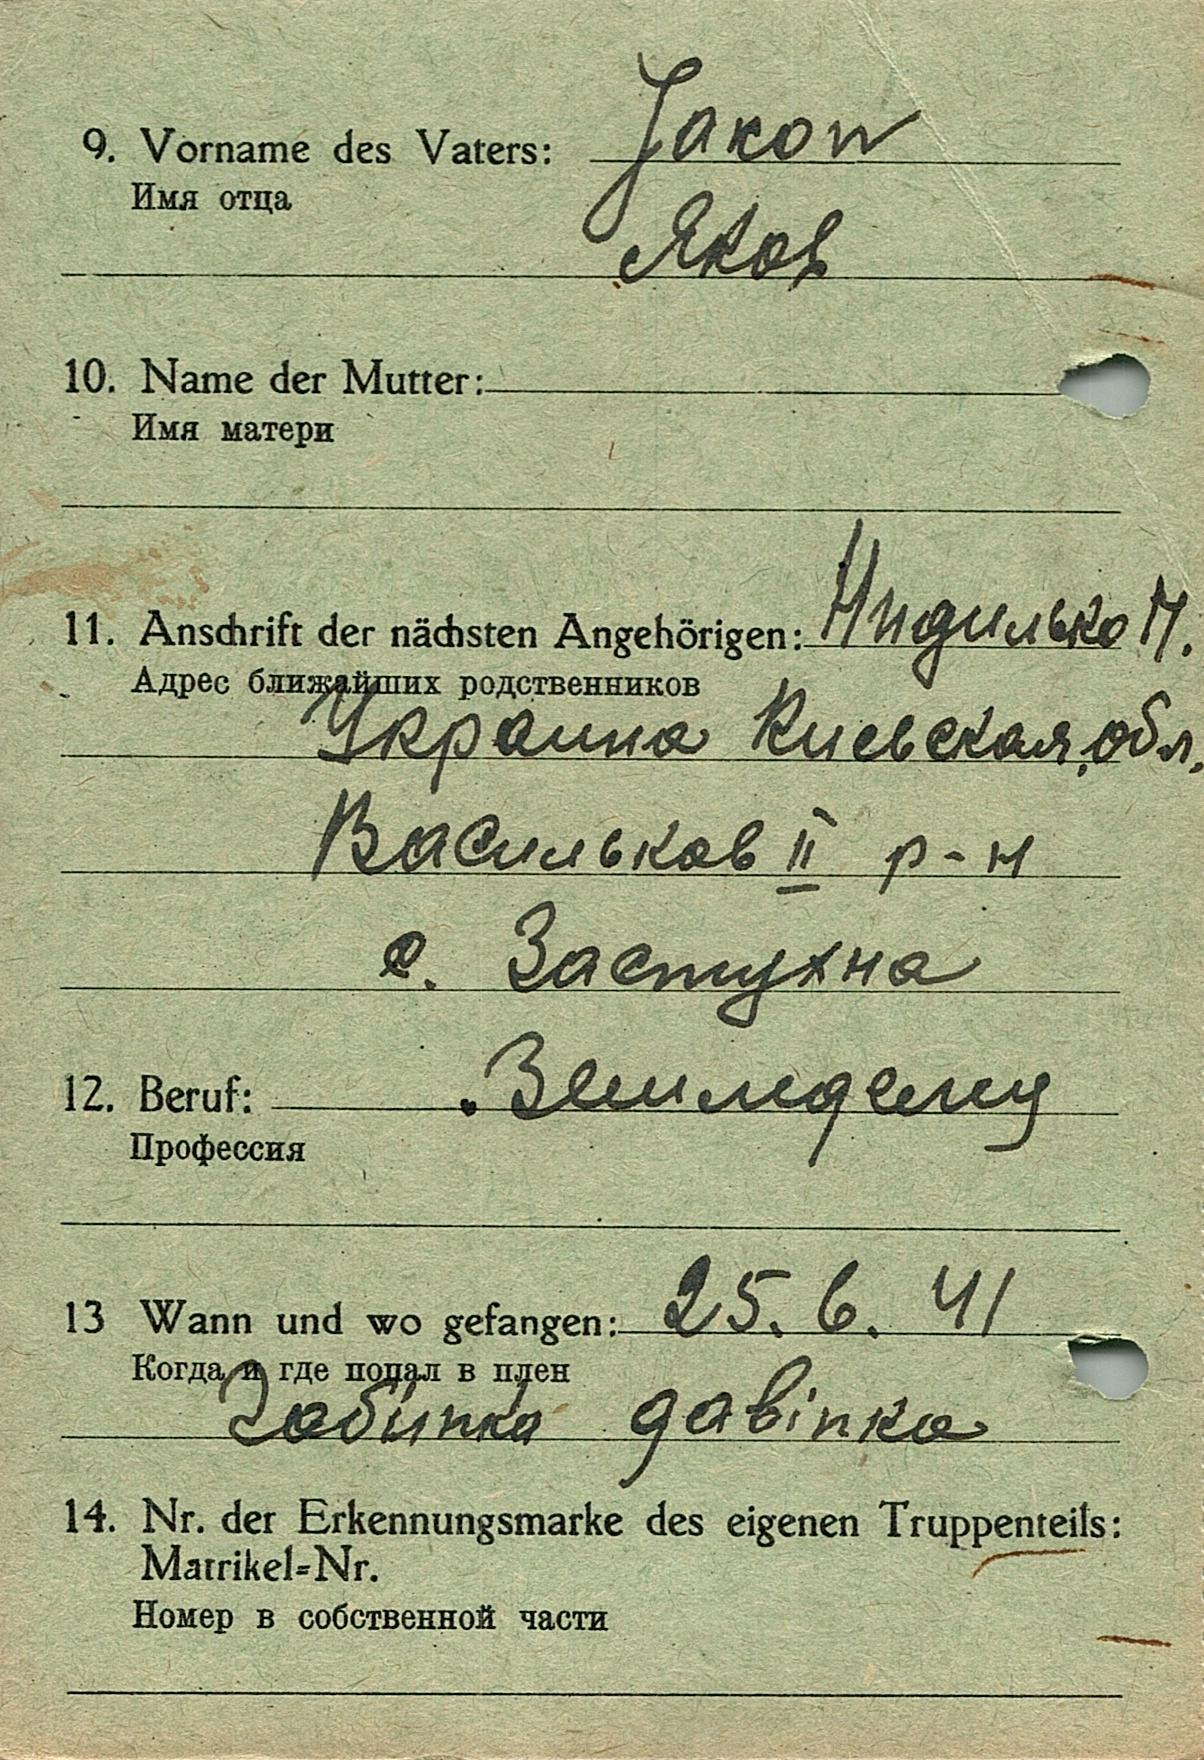 9. Vorname des Vaters: Jakow
Имя отца
Яков
10. Name der Mutter:
Имя матери
11. Anschrift der nächsten Angehörigen: Нидилько Н.
Адрес ближайших родственников
Украина Киевская обл.
Васильков II р-н
с. Застухна
12. Beruf:
Профессия
13 Wann und wo gefangen: 25. 6. 41
Когда и где попал в плен
14. Nr. der Erkennungsmarke des eigenen Truppenteils:
Matrikel=Nr.
Номер в собственной части